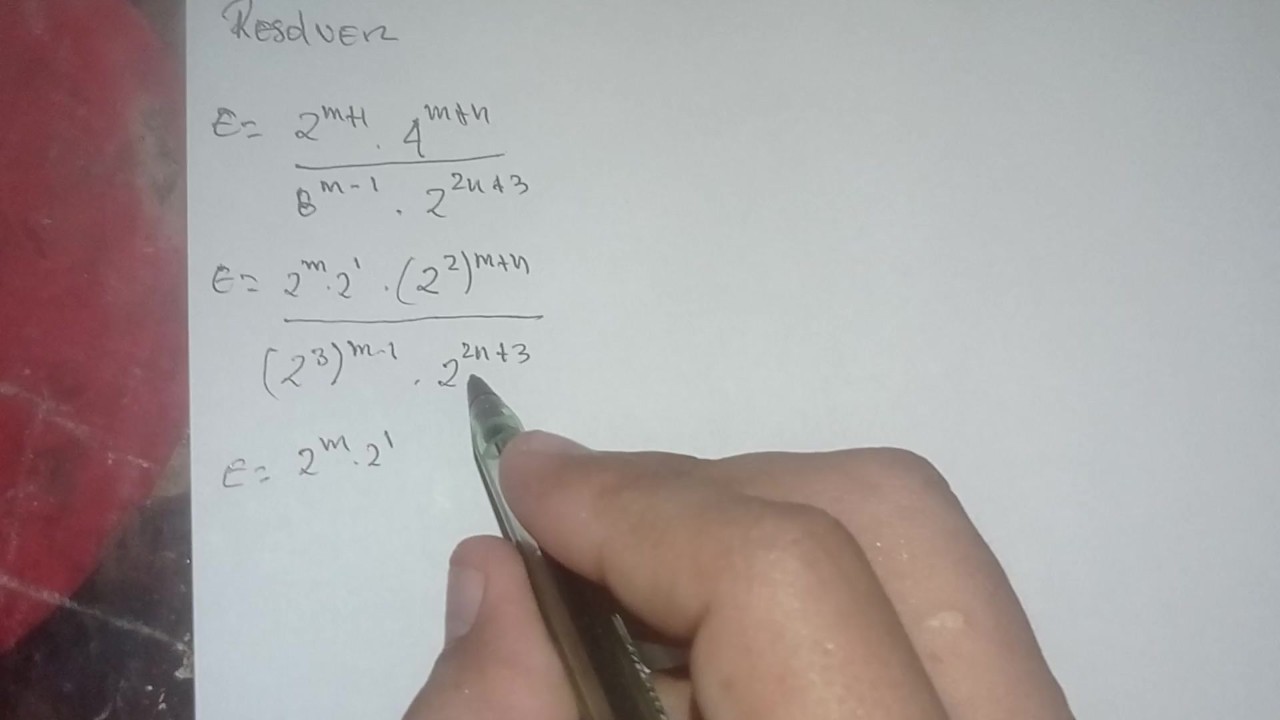 Resolver
E= 2^m+1 . 4^m+n
8^m-1 . 2^2n+3
E= 2^m . 2^1 . (2^2)^m+n
(2^3)^m-1 . 2^2n+3
E= 2^m . 2^1